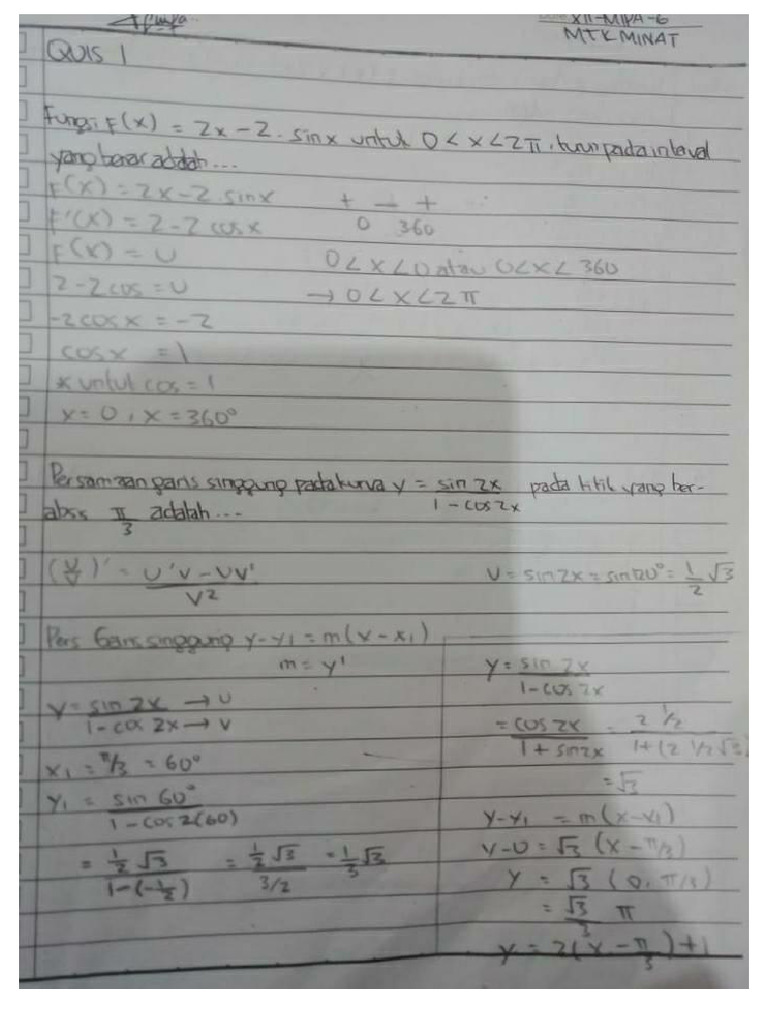 XII-MIPA-6
MTK MINAT
QUIS 1
Fungsi F(x) = 2x - 2 . sin x untuk 0 < x < 2π, turun pada interval
yang benar adalah ...
F(x) = 2x - 2 . sin x
F'(x) = 2 - 2 cos x
F(x) = 0
2 - 2 cos = 0
-2 cos x = -2
cos x = 1
x untuk cos = 1
x = 0, x = 360°
+ - +
0 360
0 < x < 0 atau 0 < x < 360
→ 0 < x < 2π
Persamaan garis singgung pada kurva y = sin 2x / 1 - cos 2x pada titik yang ber-
absis π/3 adalah ...
(U/V)' = U'V - UV' / V²
U = sin 2x = sin 120° = 1/2 √3
Pers Garis singgung y - y₁ = m(x - x₁)
m = y'
y = sin 2x → U / 1 - cos 2x → V
x₁ = π/3 = 60°
y₁ = sin 60° / 1 - cos 2(60)
= 1/2 √3 / 1 - (-1/2) = 1/2 √3 / 3/2 = 1/3 √3
y = sin 2x / 1 - cos 2x
= cos 2x / 1 + sin 2x = 2 1/2 / 1 + (2 1/2 √3)
= √3
y - y₁ = m(x - x₁)
y - 0 = √3 (x - π/3)
y = √3 (0, π/3)
= √3/3 π
y = 2(x - π/3) + 1